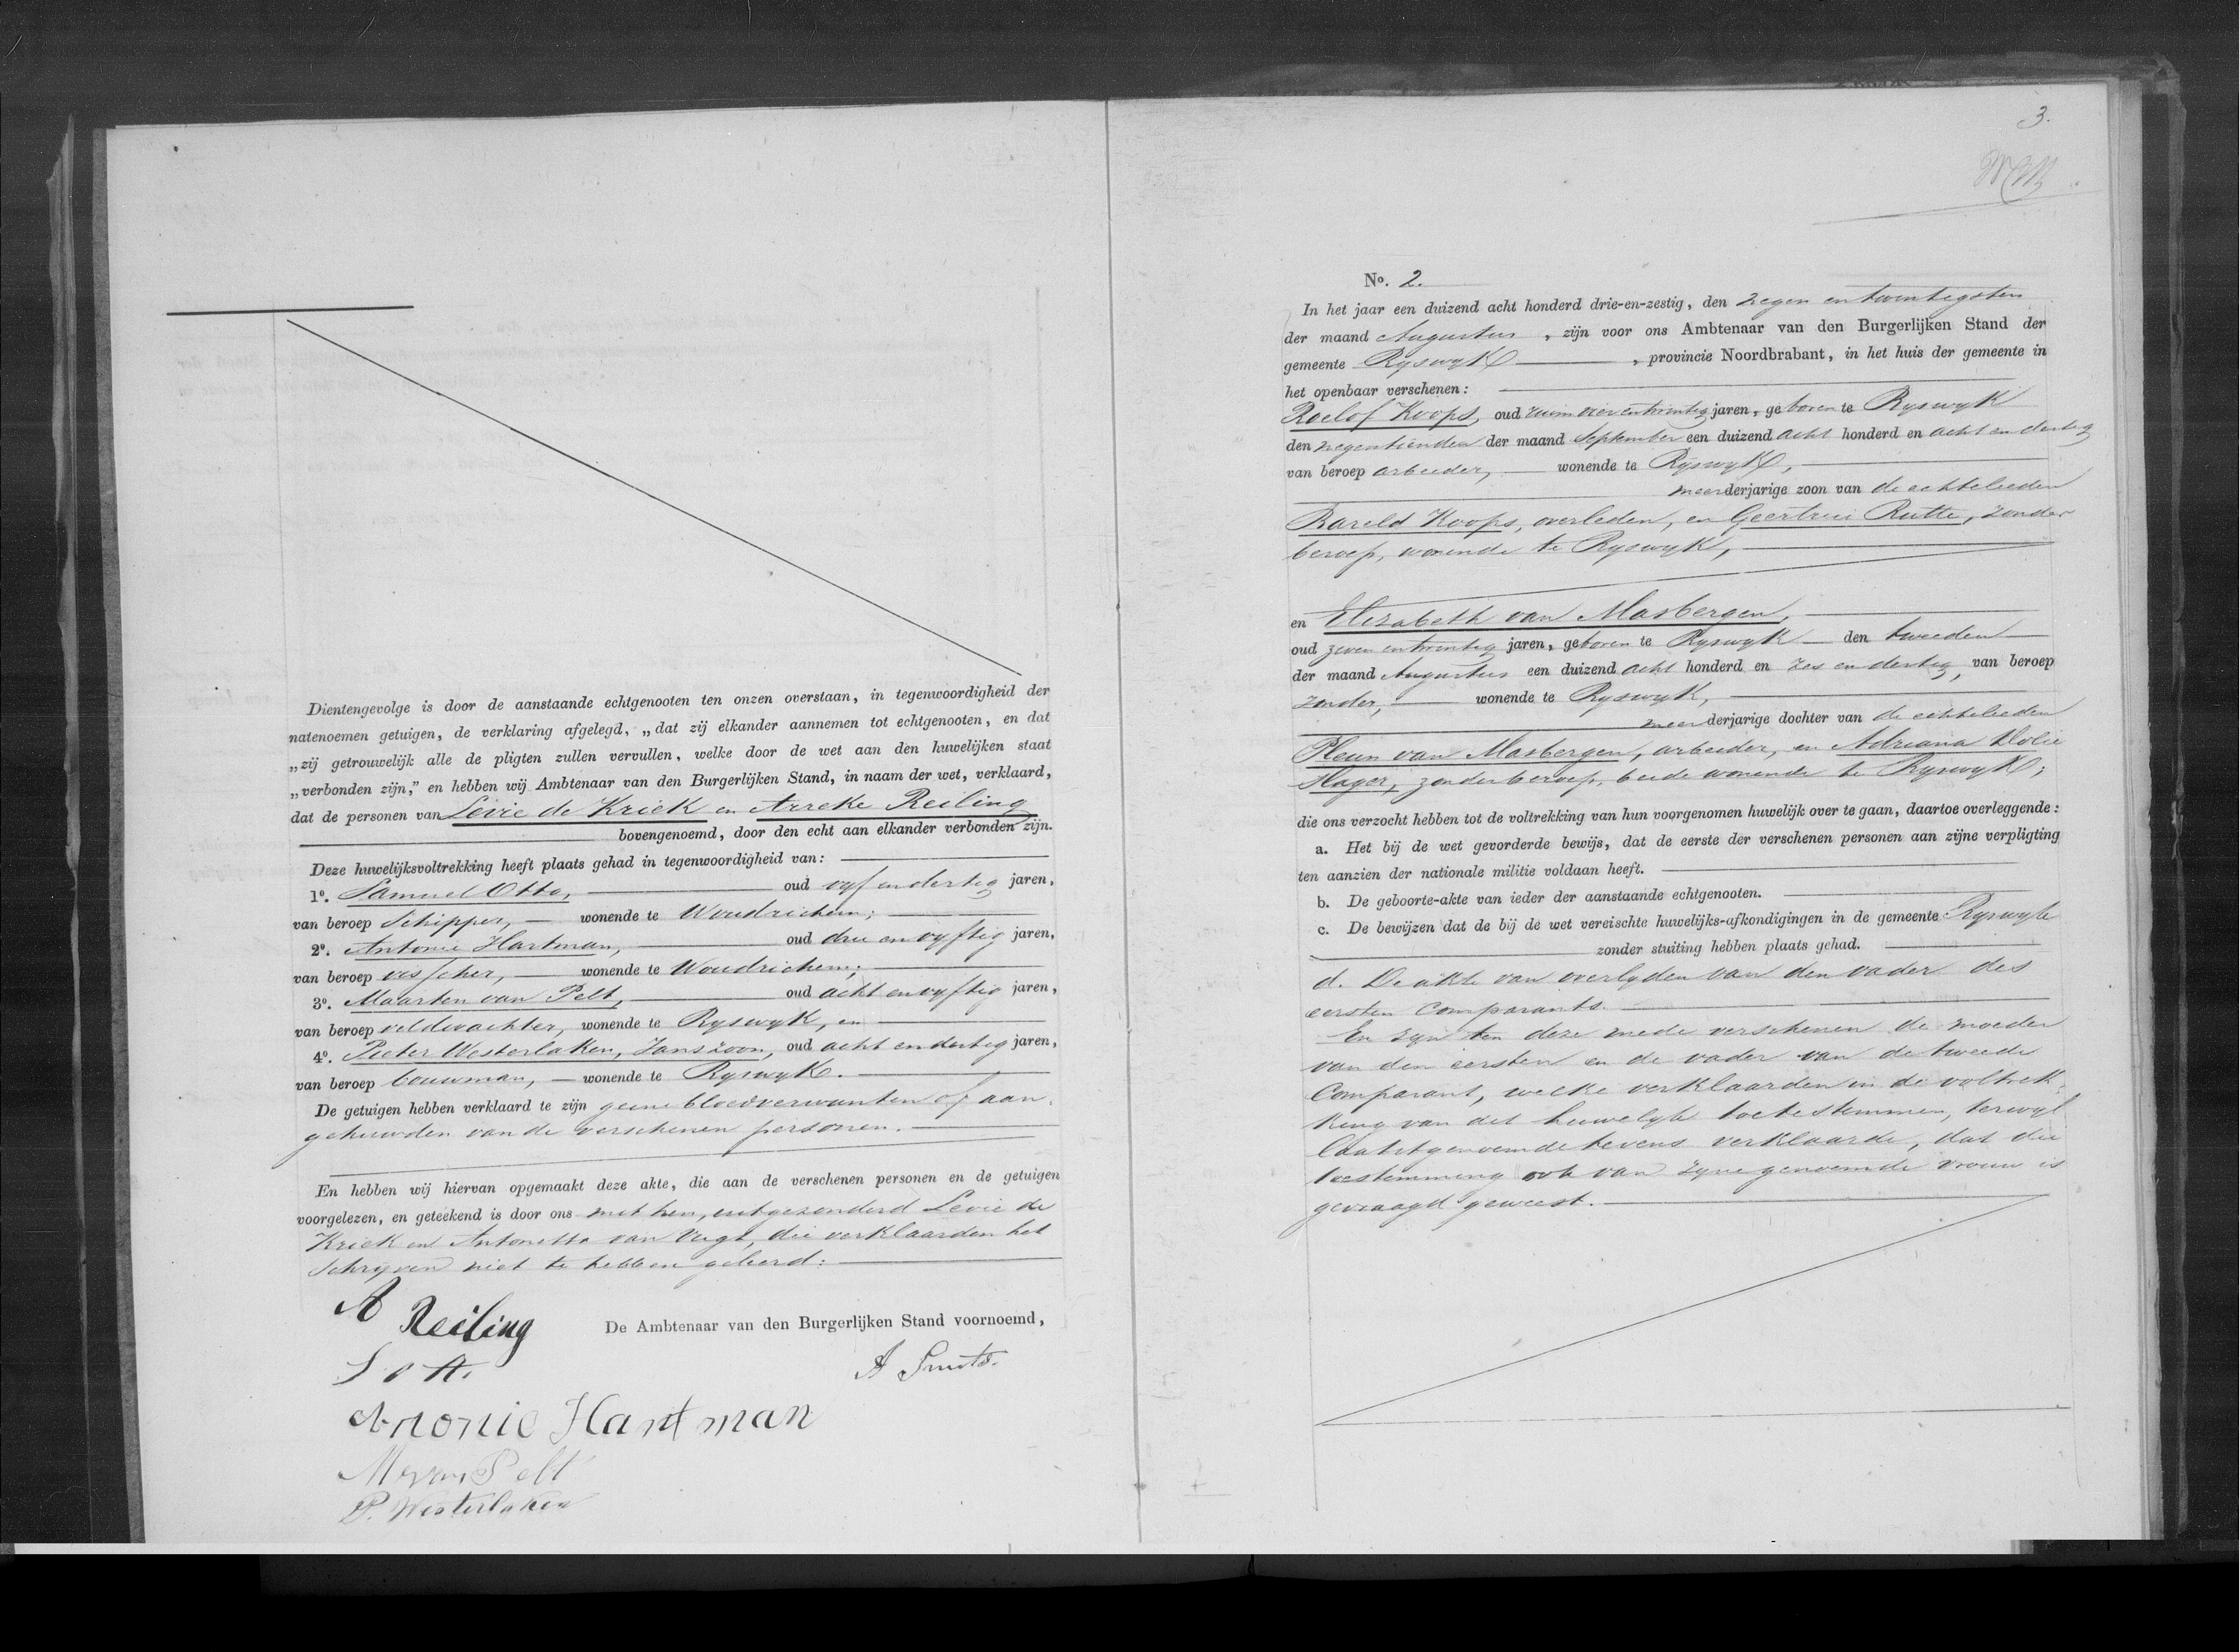 Dientengevolge is door de aanstaande echtgenooten ten onzen overstaan, in tegenwoordigheid der
natenoemen getuigen, de verklaring afgelegd, „dat zij elkander aannemen tot echtgenooten, en dat
„zij getrouwelijk alle de pligten zullen vervullen, welke door de wet aan den huwelijken staat
„verbonden zijn,” en hebben wij Ambtenaar van den Burgerlijken Stand, in naam der wet, verklaard,
dat de personen van Levie de Kriek en Arreke Reiling
bovengenoemd, door den echt aan elkander verbonden zijn.
Deze huwelijksvoltrekking heeft plaats gehad in tegenwoordigheid van:
1º. Samuel Otto, oud vyf en dertig jaren,
van beroep Schipper, wonende te Woudrichem;
2º. Antonie Hartman, oud drie en vyftig jaren,
van beroep visscher, wonende te Woudrichem;
3º. Maarten van Pelt, oud acht en vyftig jaren,
van beroep veldwachter, wonende te Ryswyk, en
4º. Pieter Westerlaken, Janszoon, oud acht en dertig jaren,
van beroep bouwman, wonende te Ryswyk.
De getuigen hebben verklaard te zijn geene bloedverwanten of aan-
gehuwden van de verschenen personen.
En hebben wij hiervan opgemaakt deze akte, die aan de verschenen personen en de getuigen
voorgelezen, en geteekend is door ons met hen, uitgezonderd Levie de
Kriek en Antonetta van Vugt, die verklaarden het
Schryven niet te hebben geleerd:
A Reiling
De Ambtenaar van den Burgerlijken Stand voornoemd,
A Smits.
Antonie Hartman
M van Pelt
P. Westerlaken
3.
No. 2.
In het jaar een duizend acht honderd drie-en-zestig, den negen en twintigsten
der maand Augustus, zijn voor ons Ambtenaar van den Burgerlijken Stand der
gemeente Ryswyk, provincie Noordbrabant, in het huis der gemeente in
het openbaar verschenen:
Roelof Koops, oud ruim vier en twintig jaren, geboren te Ryswyk
den negentienden der maand September een duizend acht honderd en acht en dertig
van beroep arbeider, wonende te Ryswyk,
meerderjarige zoon van de echtelieden
Bareld Koops, overleden, en Geertrui Rutte, zonder
beroep, wonende te Ryswyk,
en Elizabeth van Masbergen,
oud zeven en twintig jaren, geboren te Ryswyk den tweeden
der maand Augustus een duizend acht honderd en zes en dertig, van beroep
zonder, wonende te Ryswyk,
meerderjarige dochter van de echtelieden
Pleun van Masbergen, arbeider, en Adriana
Hager, zonder beroep, beide wonende te Ryswyk;
die ons verzocht hebben tot de voltrekking van hun voorgenomen huwelijk over te gaan, daartoe overleggende:
a. Het bij de wet gevorderde bewijs, dat de eerste der verschenen personen aan zijne verpligting
ten aanzien der nationale militie voldaan heeft.
b. De geboorte-akte van ieder der aanstaande echtgenooten.
c. De bewijzen dat de bij de wet vereischte huwelijks-afkondigingen in de gemeente Ryswyk
zonder stuiting hebben plaats gehad.
d. De akte van overlyden van den vader des
eersten Comparants.
En zyn ten deze mede verschenen de moeder
van den eersten en de vader van de tweede
Comparant, welke verklaarden in de voltrek-
king van dit huwelyk toe te stemmen, terwyl
laatstgenoemde tevens verklaarde, dat die
toestemming ook van zyne genoemde vrouw is
gevraagd geweest.